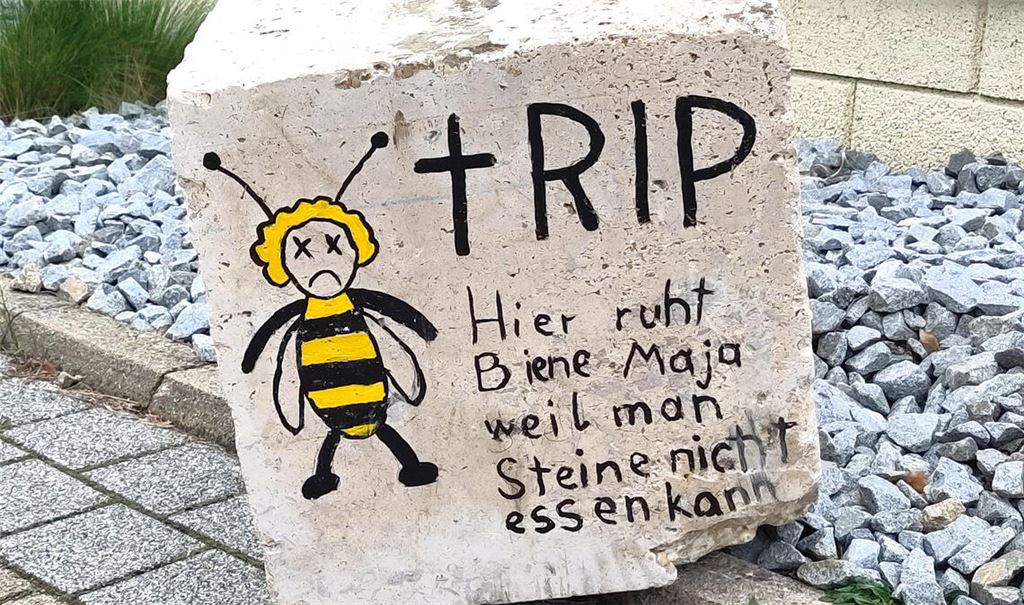 † RIP
Hier ruht
Biene Maja
weil man
Steine nicht
essen kann